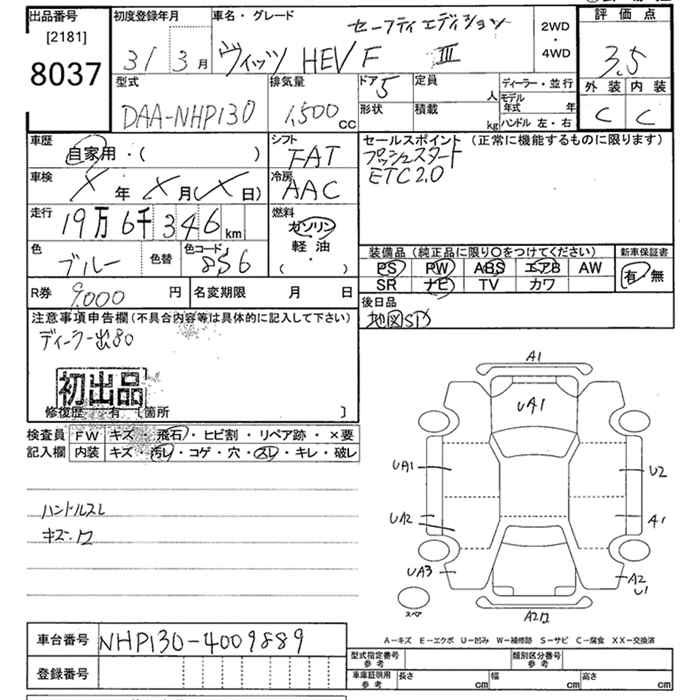 出品番号
[2181]
8037
初度登録年月
31 3月
車名・グレード
セーフティエディション
ヴィッツ HEV F Ⅲ
2WD
・
4WD
評価点
3.5
外装 内装
C C
型式
DAA-NHP130
排気量
1,500 cc
ドア 5
形状
定員 人
積載 kg
ディーラー・並行
モデル年式 年
ハンドル 左・右
車歴
自家用・( )
シフト
FAT
セールスポイント (正常に機能するものに限ります)
プッシュスタート
ETC2.0
車検
X年 X月(X日)
冷房
AAC
走行
19万6千346km
燃料
ガソリン
軽油
( ・ )
色
ブルー
色替
色コード
8S6
装備品 (純正品に限り○をつけてください)
PS PW ABS エアB AW
SR ナビ TV カワ
新車保証書
有・無
R券
9,000 円
名変期限 月 日
後日品
地図SD
注意事項申告欄 (不具合内容等は具体的に記入して下さい)
ディーラー出80
初出品
修復歴 有 [箇所 ]
検査員 FW キズ・飛石・ヒビ割・リペア跡・×要
記入欄 内装 キズ・汚レ・コゲ・穴・スレ・キレ・破レ
ハンドルスレ
A1
UA1
UA1
U2
UA2
A1
UA3
A2
U1
スペア
A-キズ E-エクボ U-凹み W-補修跡 S-サビ C-腐食 XX-交換済
車台番号 NHP130-4009889
登録番号
型式指定番号 参考
類別区分番号 参考
車庫証明用 参考 長さ cm 幅 cm 高さ cm